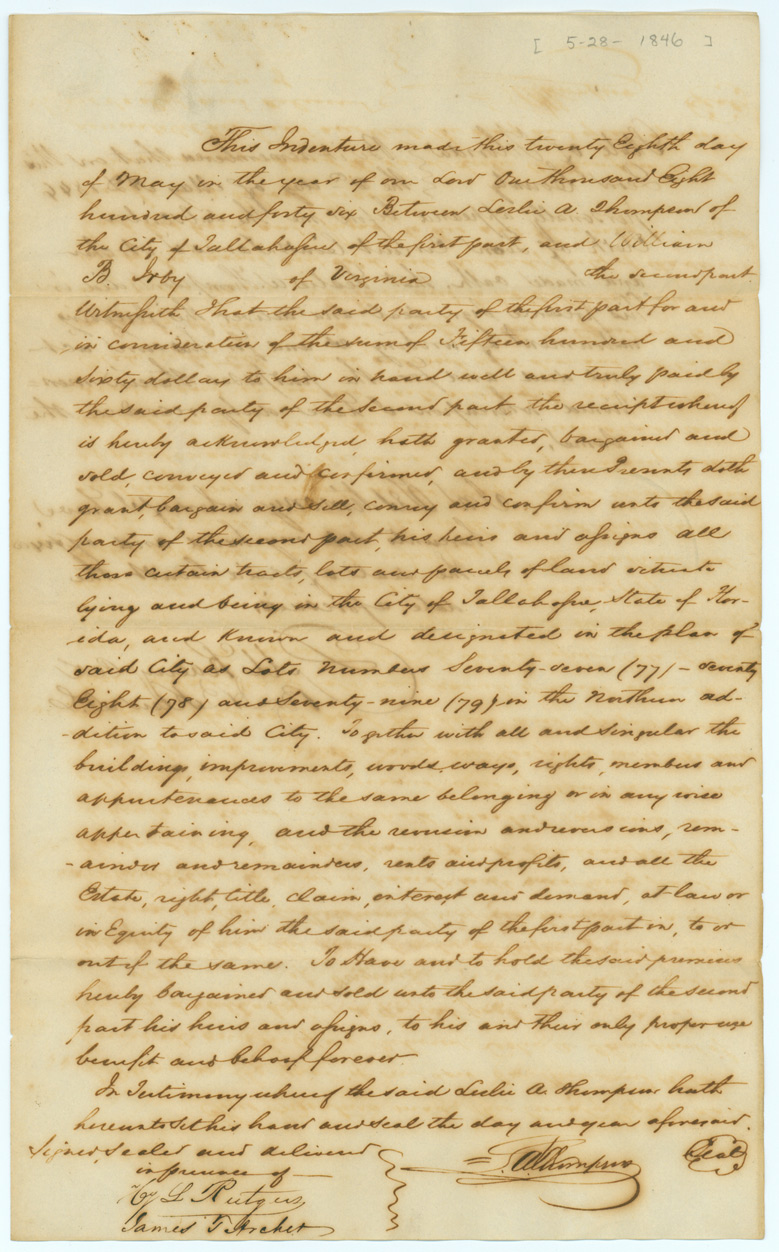 [ 5-28- 1846 ]
This Indenture made this twenty Eighth day
of May in the year of our Lord One thousand Eight
hundred and forty six Between Leslie A. Thompson of
the City of Tallahassee of the first part, and William
B. Irby of Virginia the second part.
Witnesseth That the said party of the first part for and
in consideration of the sum of Fifteen hundred and
Sixty dollars to him in hand well and truly paid by
the said party of the second part the receipt whereof
is hereby acknowledged, hath granted, bargained and
sold, conveyed and confirmed, and by these Presents doth
grant, bargain and sell, convey and confirm unto the said
party of the second part, his heirs and assigns all
those certain tracts, lots and parcels of land situate
lying and being in the City of Tallahassee, State of Flor-
-ida, and known and designated in the plan of
said City as Lots numbers Seventy-seven (77) - seventy
Eight (78) and Seventy-nine (79) in the Northern ad-
-dition to said City. Together with all and singular the
buildings, improvements, woods, ways, rights, members and
appurtenances to the same belonging or in any wise
appertaining, and the reversion and reversions, rem-
-ainder and remainders, rents and profits, and all the
Estate, right, title, claim, interest and demand, at law or
in Equity of him the said party of the first part in, to or
out of the same. To Have and to hold the said premises
hereby bargained and sold unto the said party of the second
part his heirs and assigns, to his and their only proper use
benefit and behoof forever.
In Testimony whereof the said Leslie A. Thompson hath
hereunto Set his hand and seal the day and year aforesaid.
Signed, sealed and delivered
in presence of L. A. Thompson Seal
Hy L Rutgers
James T Archer